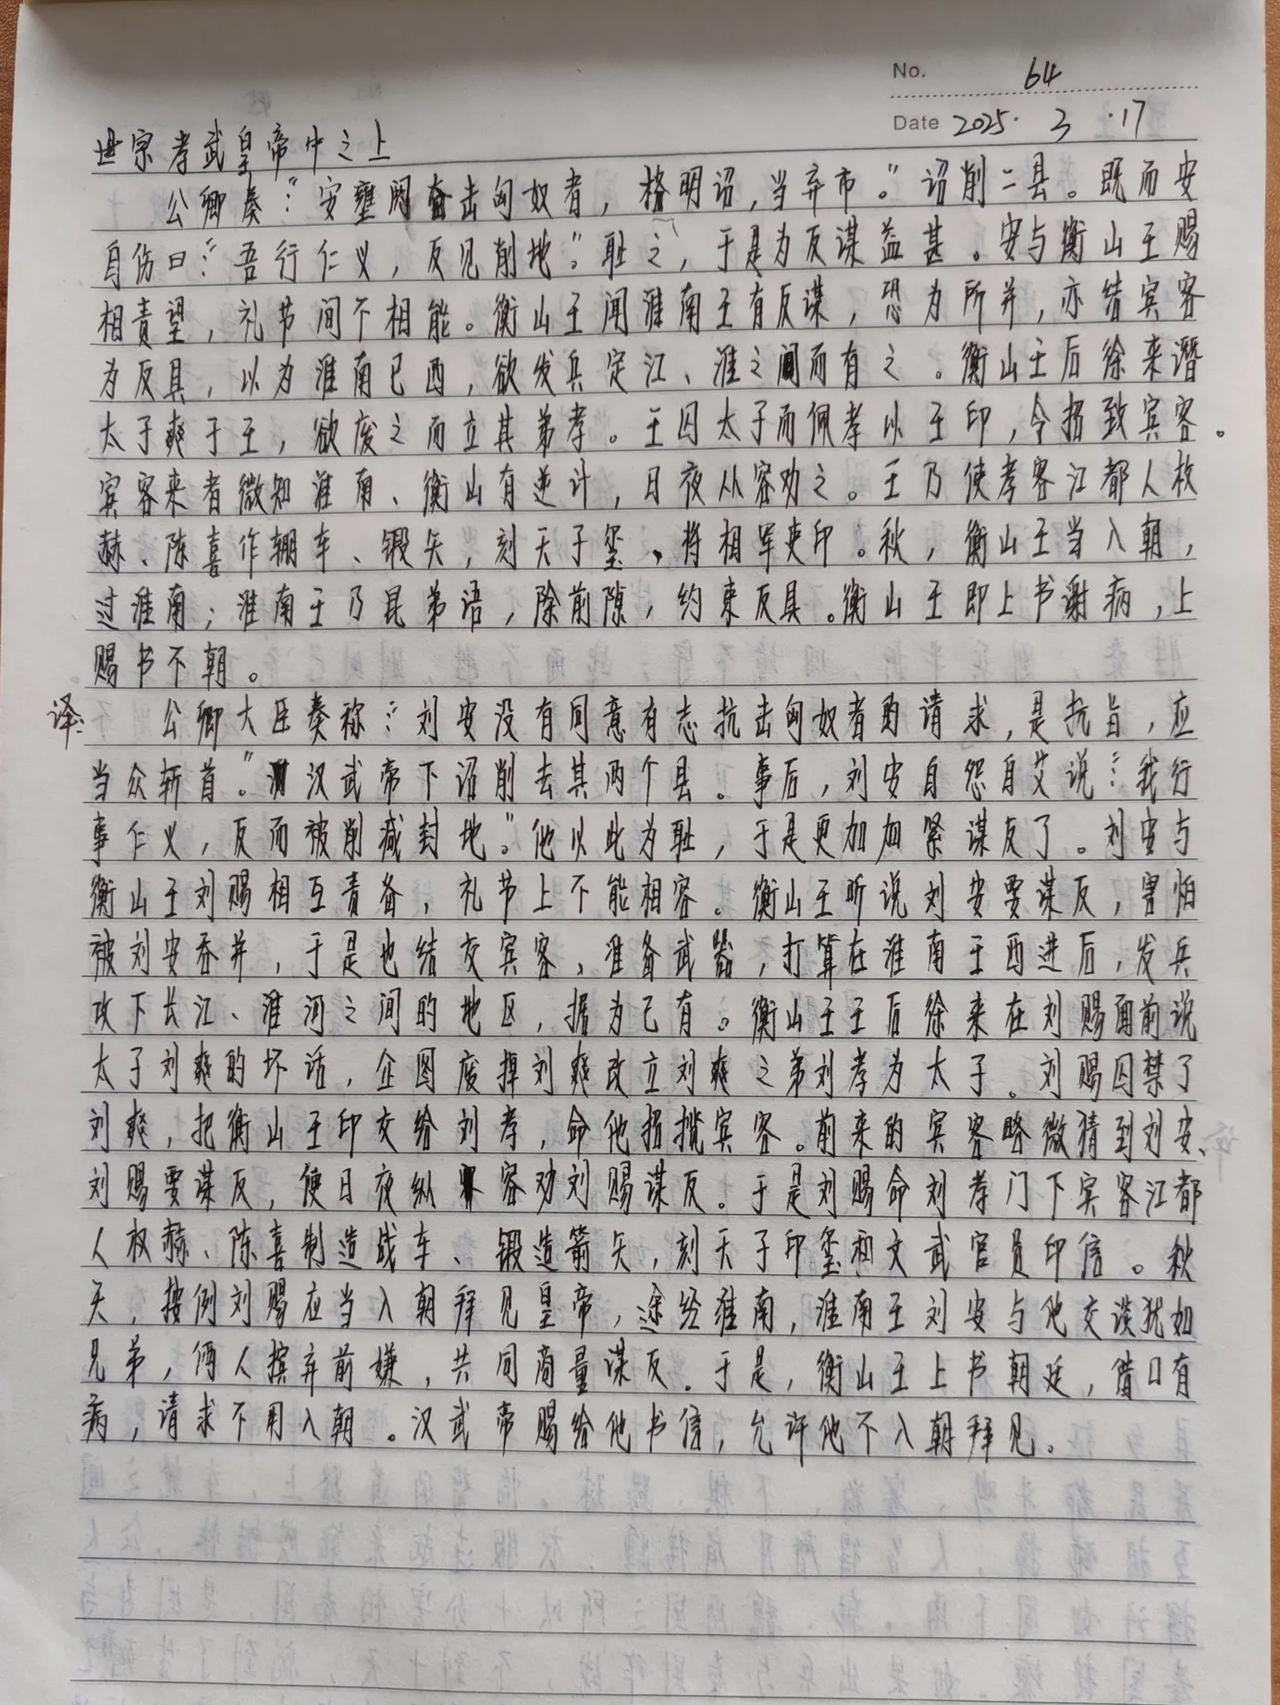 No. 64
Date 2025. 3 .17
世宗孝武皇帝中之上
公卿奏:“安壅阏奋击匈奴者，格明诏,当弃市。”诏削二县。既而安
自伤曰:“吾行仁义，反见削地。”耻之，于是为反谋益甚。安与衡山王赐
相责望，礼节间不相能。衡山王闻淮南王有反谋，恐为所并，亦结宾客
为反具，以为淮南已西，欲发兵定江、淮之间而有之。衡山王后徐来谮
太子爽于王，欲废之而立其弟孝。王囚太子而佩孝以王印，令招致宾客。
宾客来者微知淮南、衡山有逆计，日夜从容劝之。王乃使孝客江都人枚
赫、陈喜作輣车、锻矢，刻天子玺、将相军吏印。秋，衡山王当入朝，
过淮南；淮南王乃昆弟语，除前隙，约束反具。衡山王即上书谢病，上
赐书不朝。
译: 公卿大臣奏称:“刘安没有同意有志抗击匈奴者的请求，是抗旨，应
当众斩首。”汉武帝下诏削去其两个县。事后，刘安自怨自艾说:“我行
事仁义，反而被削减封地。”他以此为耻，于是更加加紧谋反了。刘安与
衡山王刘赐相互责备，礼节上不能相容。衡山王听说刘安要谋反，害怕
被刘安吞并，于是也结交宾客，准备武器，打算在淮南王西进后，发兵
攻下长江、淮河之间的地区，据为已有。衡山王王后徐来在刘赐面前说
太子刘爽的坏话，企图废掉刘爽改立刘爽之弟刘孝为太子。刘赐囚禁了
刘爽，把衡山王印交给刘孝，命他招揽宾客。前来的宾客略微猜到刘安、
刘赐要谋反，便日夜纵容劝刘赐谋反。于是刘赐命刘孝门下宾客江都
人权赫、陈喜制造战车、锻造箭矢，刻天子印玺和文武官员印信。秋
天，按例刘赐应当入朝拜见皇帝，途经淮南，淮南王刘安与他交谈犹如
兄弟，俩人摈弃前嫌，共同商量谋反。于是，衡山王上书朝廷，借口有
病，请求不用入朝。汉武帝赐给他书信，允许他不入朝拜见。